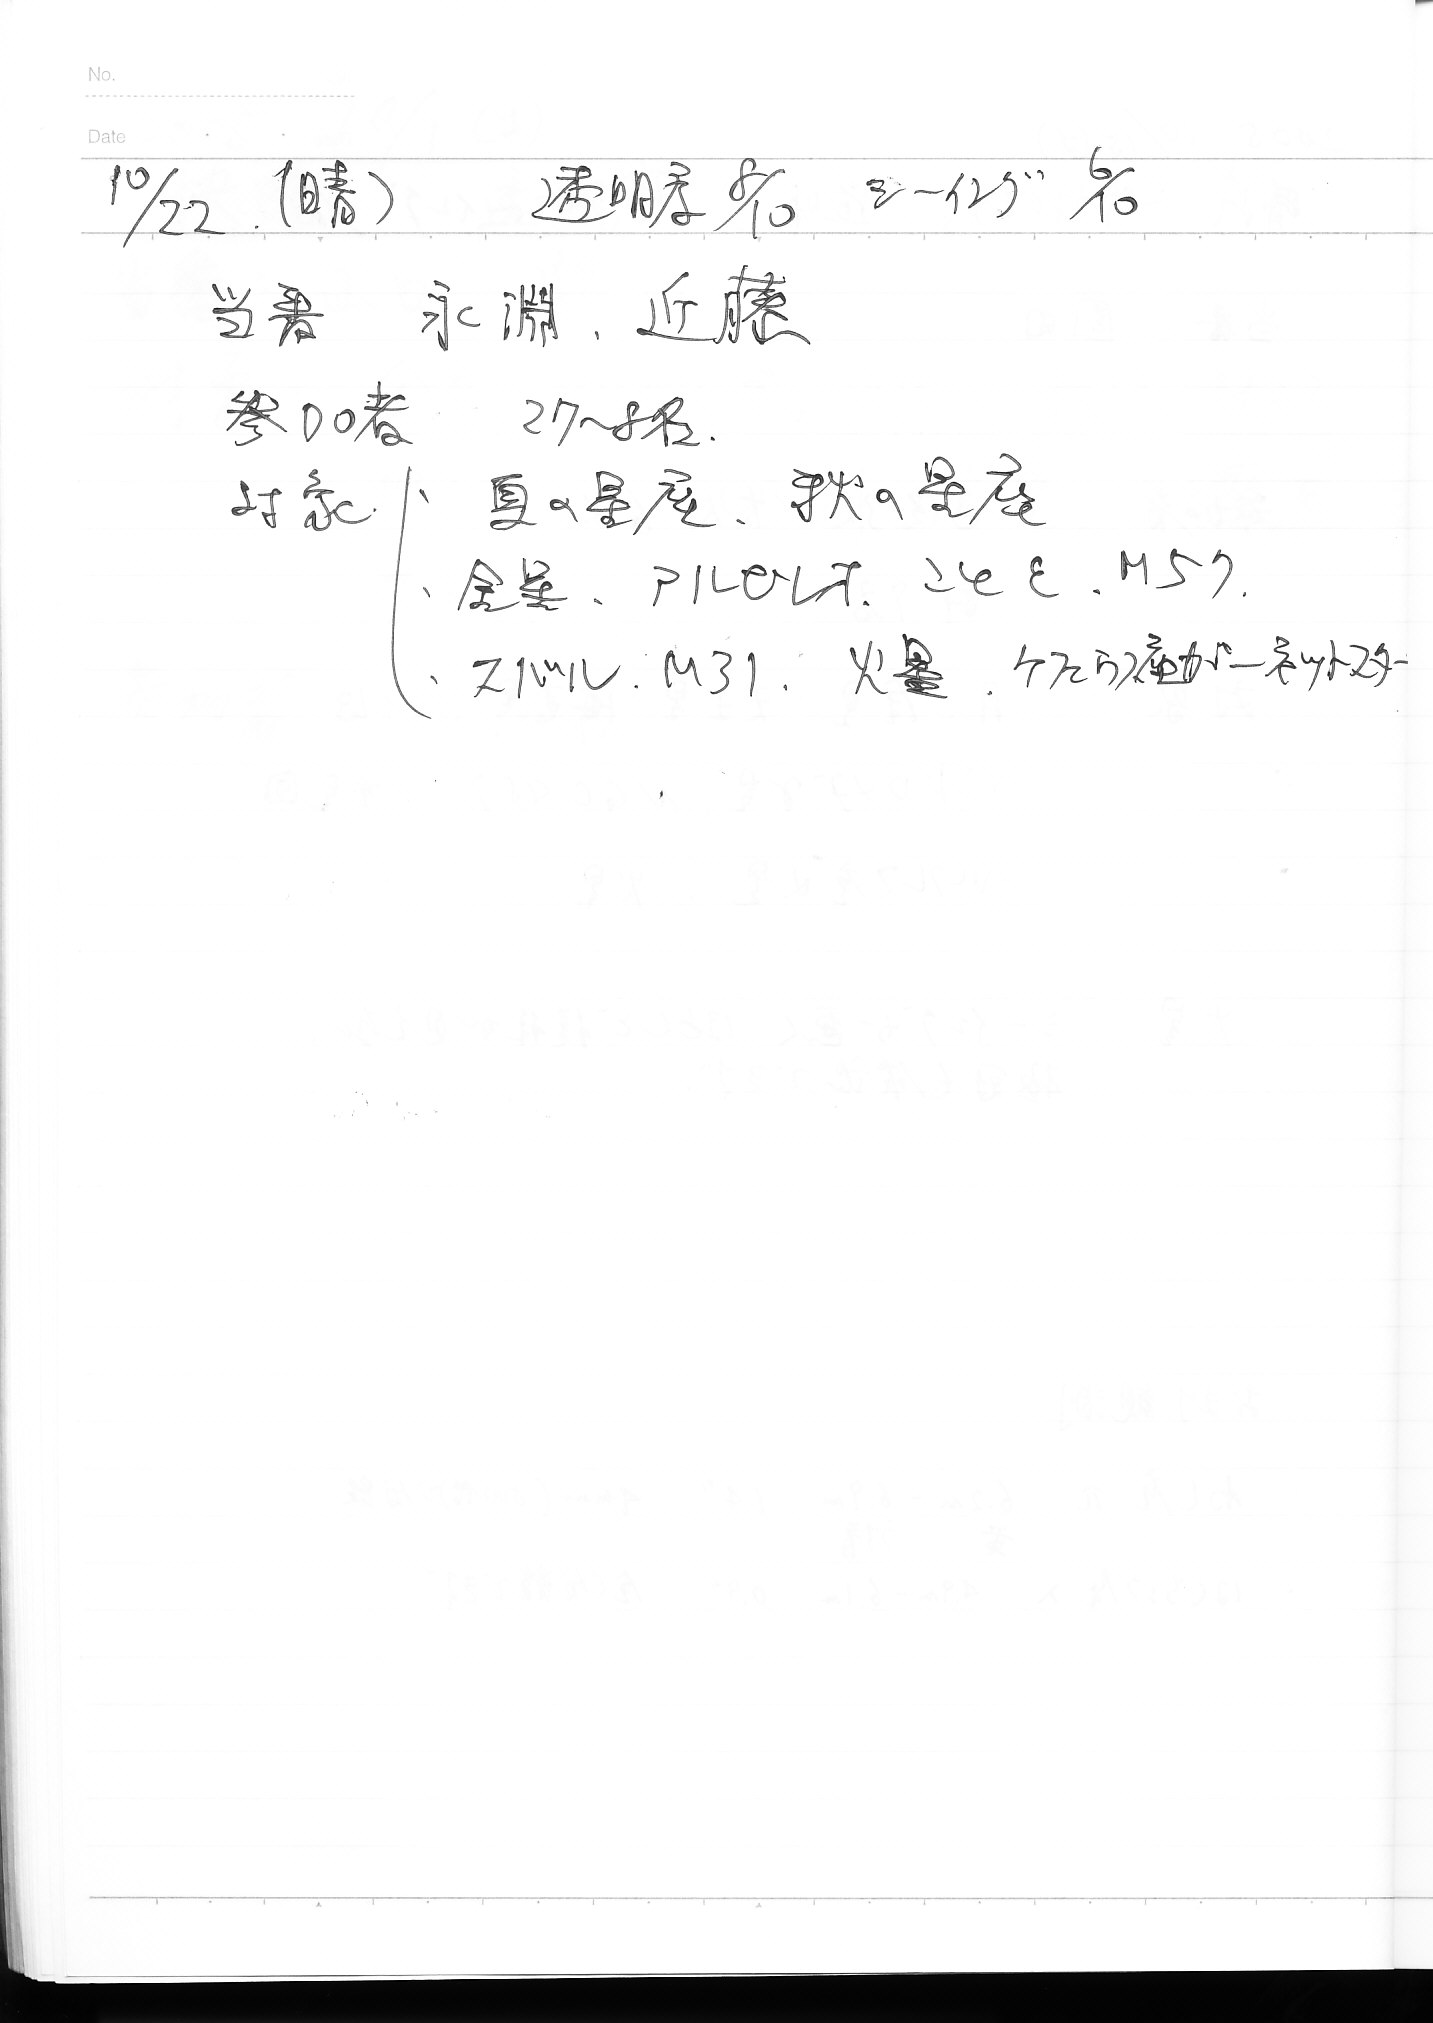 No.
Date
10/22.(晴) 透明度 8/10 シーイング 6/10
当番 永淵、近藤
参加者 27〜8名.
対象 、夏の星座、秋の星座
、金星、アルビレオ. こと座ε、M57.
、スバル. M31. 火星. ケフェウス座ガーネットスター